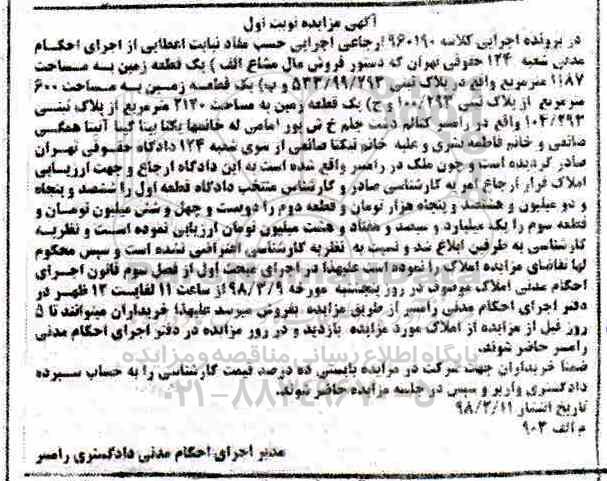 آگهی مزایده نوبت اول
در پرونده اجرایی کلاسه ۹۶۰۱۹۰ ارجاعی اجرایی حسب مفاد نیابت اعطایی از اجرای احکام
مدنی شعبه ۱۲۴ حقوقی تهران که دستور فروش مال مشاع الف ) یک قطعه زمین به مساحت
۱۱۸۷ مترمربع واقع در پلاک ثبتی ۵۳۳/۹۹/۲۹۳ و ب) یک قطعه زمین به مساحت ۶۰۰
مترمربع از پلاک ثبتی ۱۰۰/۲۹۳ و ج) یک قطعه زمین به مساحت ۲۱۲۰ مترمربع از پلاک ثبتی
۱۰۴/۲۹۳ واقع در رامسر کتالم دشت جلم خ ش پور امامی له خانمها یکتا بیتا گیتا آنیتا همگی
صانعی و خانم فاطمه بشری و علیه خانم نیکتا صانعی از سوی شعبه ۱۲۴ دادگاه حقوقی تهران
صادر گردیده است و چون ملک در رامسر واقع شده است به این دادگاه ارجاع و جهت ارزیابی
املاک قرار ارجاع امر به کارشناسی صادر و کارشناس منتخب دادگاه قطعه اول را ششصد و پنجاه
و دو میلیون و هشتصد و پنجاه هزار تومان و قطعه دوم را دویست و چهل و شش میلیون تومان و
قطعه سوم را یک میلیارد و سیصد و هفتاد و هشت میلیون تومان ارزیابی نموده است و نظریه
کارشناسی به طرفین ابلاغ شد و نسبت به نظریه کارشناسی اعتراضی نشده است و سپس محکوم
لها تقاضای مزایده املاک را نموده است علیهذا در اجرای مبحث اول از فصل سوم قانون اجرای
احکام مدنی املاک موصوف در روز پنجشنبه مورخه ۹۸/۳/۹ از ساعت ۱۱ لغایت ۱۲ ظهر در
دفتر اجرای احکام مدنی رامسر از طریق مزایده بفروش میرسد علیهذا خریداران میتوانند تا ۵
روز قبل از مزایده از املاک مورد مزایده بازدید و در روز مزایده در دفتر اجرای احکام مدنی
رامسر حاضر شوند.
ضمنا خریداران جهت شرکت در مزایده بایستی ده درصد قیمت کارشناسی را به حساب سپرده
دادگستری واریز و سپس در جلسه مزایده حاضر شوند.
تاریخ انتشار ۹۸/۲/۱۱
م الف ۹۰۳
مدیر اجرای احکام مدنی دادگستری رامسر
پایگاه اطلاع رسانی مناقصه و مزایده
۰۲۱-۸۸۳۴۹۶۷۰-۵